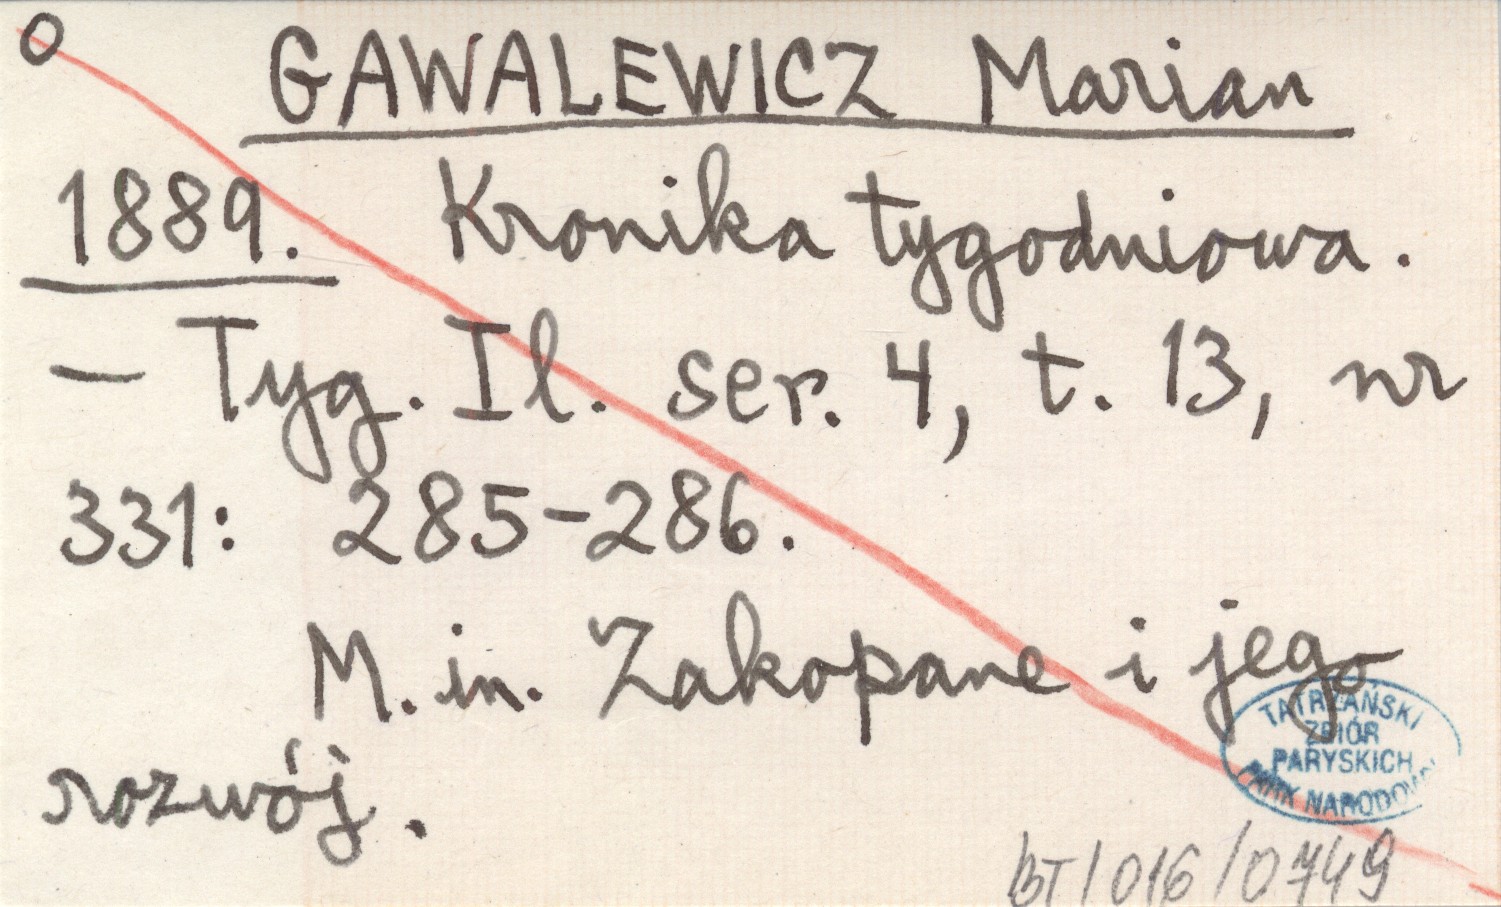 O
GAWALEWICZ Marian
1889. Kronika tygodniowa.
– Tyg. Il. ser. 4, t. 13, nr
331: 285–286.
M. in. Zakopane i jego
rozwój.
TATRZAŃSKI
ZBIÓR
PARYSKICH
PARK NARODOWY
BT/016/0749